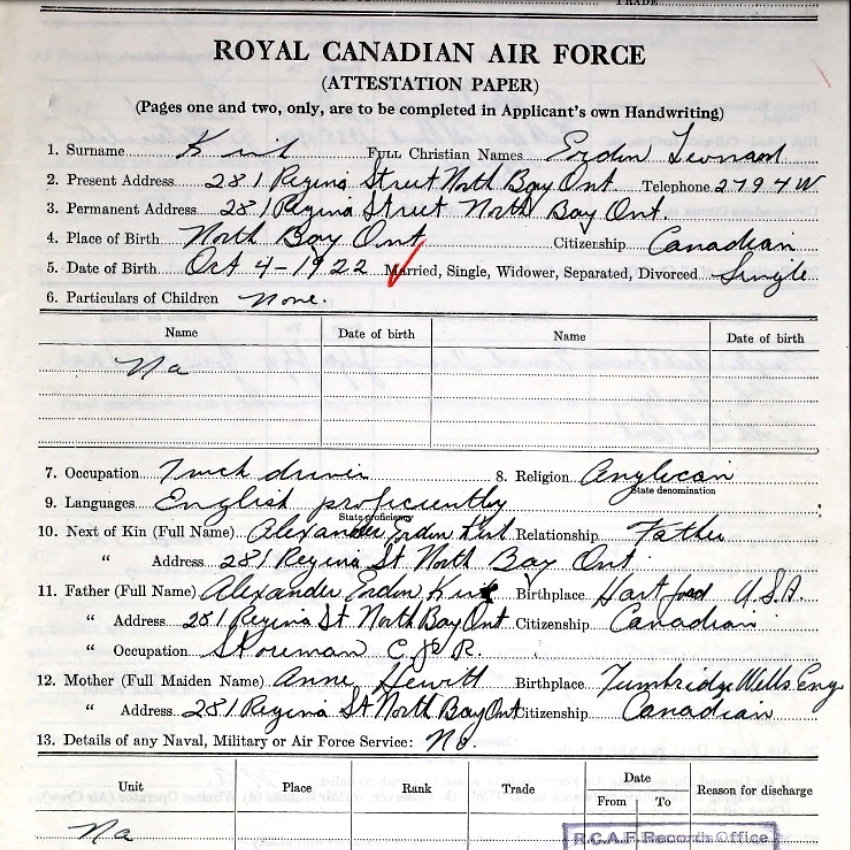 TRADE
ROYAL CANADIAN AIR FORCE
(ATTESTATION PAPER)
(Pages one and two, only, are to be completed in Applicant's own Handwriting)
1. Surname Kirk FULL Christian Names Erdin Leonard
2. Present Address 281 Regina Street North Bay Ont Telephone 2794W
3. Permanent Address 281 Regina Street North Bay Ont.
4. Place of Birth North Bay Ont Citizenship Canadian
5. Date of Birth Oct 4-1922 Married, Single, Widower, Separated, Divorced Single
6. Particulars of Children None.
Name Date of birth Name Date of birth
Na
7. Occupation Truck driver 8. Religion Anglican
State denomination
9. Languages English proficiently
State proficiency
10. Next of Kin (Full Name) Alexander Erdin Kirk Relationship Father
" Address 281 Regina St North Bay Ont.
11. Father (Full Name) Alexander Erdin Kirk Birthplace Hartford U.S.A.
" Address 281 Regina St North Bay Ont Citizenship Canadian
" Occupation Storeman C. P. R.
12. Mother (Full Maiden Name) Anne Hewitt Birthplace Tumbridge Wells Eng
" Address 281 Regina St North Bay Ont Citizenship Canadian
13. Details of any Naval, Military or Air Force Service: No.
Unit Place Rank Trade Date From To Reason for discharge
Na
R.C.A.F. Records Office